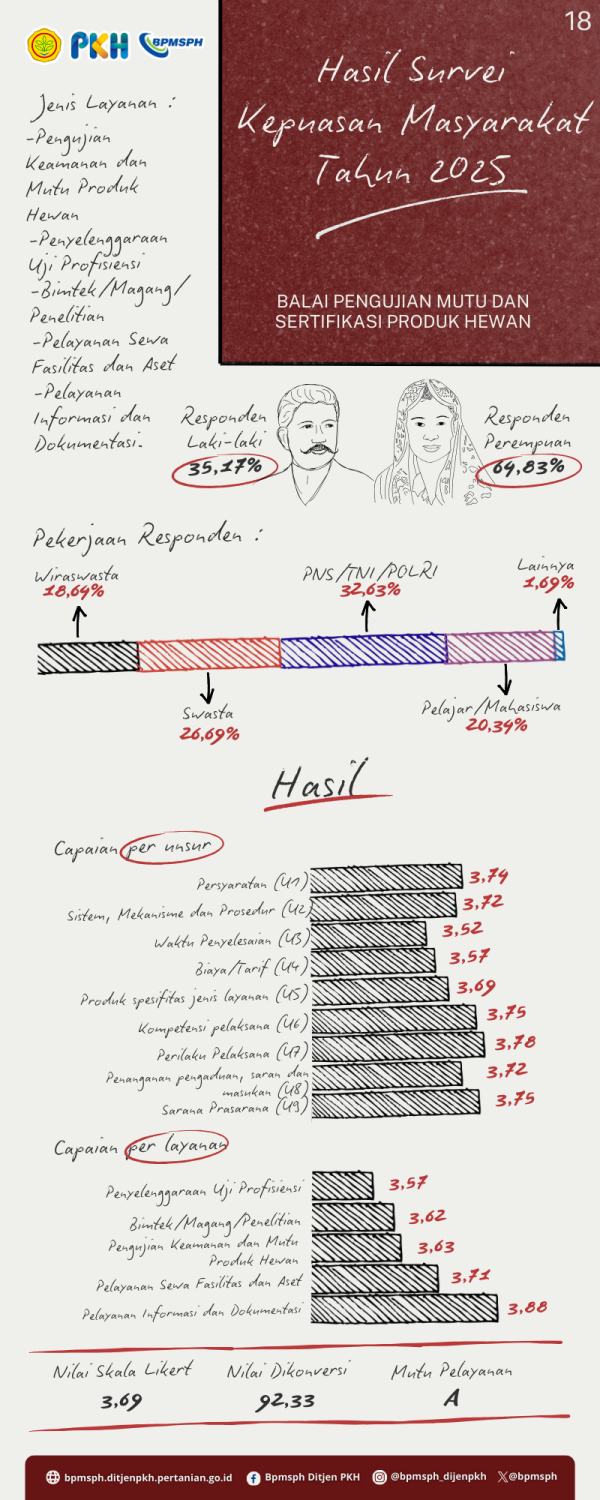 18
PKH
BPMSPH
Hasil Survei
Kepuasan Masyarakat
Tahun 2025
BALAI PENGUJIAN MUTU DAN
SERTIFIKASI PRODUK HEWAN
Jenis Layanan :
-Pengujian
Keamanan dan
Mutu Produk
Hewan
-Penyelenggaraan
Uji Profisiensi
-Bimtek/Magang/
Penelitian
-Pelayanan Sewa
Fasilitas dan Aset
-Pelayanan
Informasi dan
Dokumentasi.
Responden
Laki-laki
35,17%
Responden
Perempuan
64,83%
Pekerjaan Responden :
Wiraswasta
18,64%
PNS/TNI/POLRI
32,63%
Lainnya
1,69%
Swasta
26,69%
Pelajar/Mahasiswa
20,34%
Hasil
Capaian per unsur
Persyaratan (U1) 3,74
Sistem, Mekanisme dan Prosedur (U2) 3,72
Waktu Penyelesaian (U3) 3,52
Biaya/Tarif (U4) 3,57
Produk spesifitas jenis layanan (U5) 3,69
Kompetensi pelaksana (U6) 3,75
Perilaku Pelaksana (U7) 3,78
Penanganan pengaduan, saran dan
masukan (U8) 3,72
Sarana Prasarana (U9) 3,75
Capaian per layanan
Penyelenggaraan Uji Profisiensi 3,57
Bimtek/Magang/Penelitian 3,62
Pengujian Keamanan dan Mutu
Produk Hewan 3,63
Pelayanan Sewa Fasilitas dan Aset 3,71
Pelayanan Informasi dan Dokumentasi 3,88
Nilai Skala Likert Nilai Dikonversi Mutu Pelayanan
3,69 92,33 A
bpmsph.ditjenpkh.pertanian.go.id Bpmsph Ditjen PKH @bpmsph_dijenpkh @bpmsph